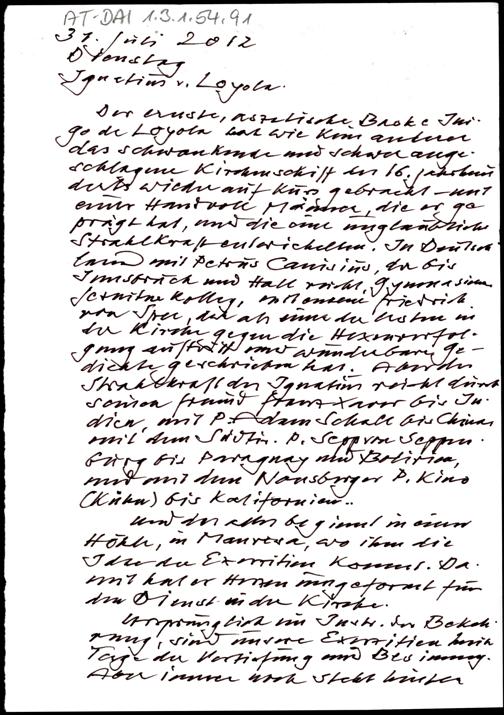 AT-DAI 1.3.1.54.91
31. Juli 2012
Dienstag
Ignatius v. Loyola.
Der ernste, asketische Baske Ini-
go de Loyola hat wie kein anderer
das schwankende und schwer ange-
schlagene Kirchenschiff des 16. Jahrhun
derts wieder auf Kurs gebracht - mit
einer Handvoll Männer, die er ge
prägt hat, und die eine unglaubliche
Strahlkraft entwickelten. In Deutsch-
land mit Petrus Canisius, der bis
Innsbruck und Hall reicht, Gymnasium
Jesuitenkolleg, mit unserem Friedrich
von Spee, der als einer der ersten in
der Kirche gegen die Hexenverfol-
gung auftritt und wunderbare Ge-
dichte geschrieben hat. Aber die
Strahlkraft des Ignatius reicht durch
seinen Freund Franz Xaver bis In-
dien, mit P. Adam Schall bis China
mit dem Südtir. P. Sepp von Seppen-
burg bis Paraguay und Bolivien,
und mit dem Nonsberger P. Kino
(Kühn) bis Kalifornien..
Und das alles beginnt in einer
Höhle, in Manresa, wo ihm die
Idee der Exerzitien kommt. Da-
mit hat er Herzen umgeformt für
den Dienst in der Kirche.
Ursprünglich ein Instr. der Bekeh-
rung, sind unsere Exerzitien heute
Tage der Vertiefung und Besinnung.
Aber immer noch steht hinter